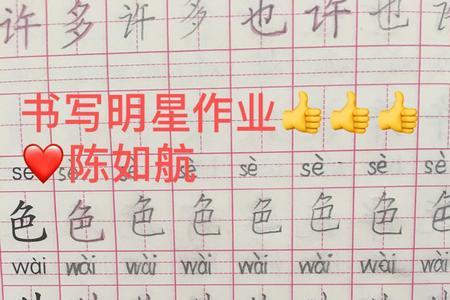 许 多 许 多 也 许 也
书写明星作业👍👍👍
❤️陈如航
sè sè sè sè sè sè
色 色 色 色 色 色 色 色
wài wài wài wài wài wài wài wài